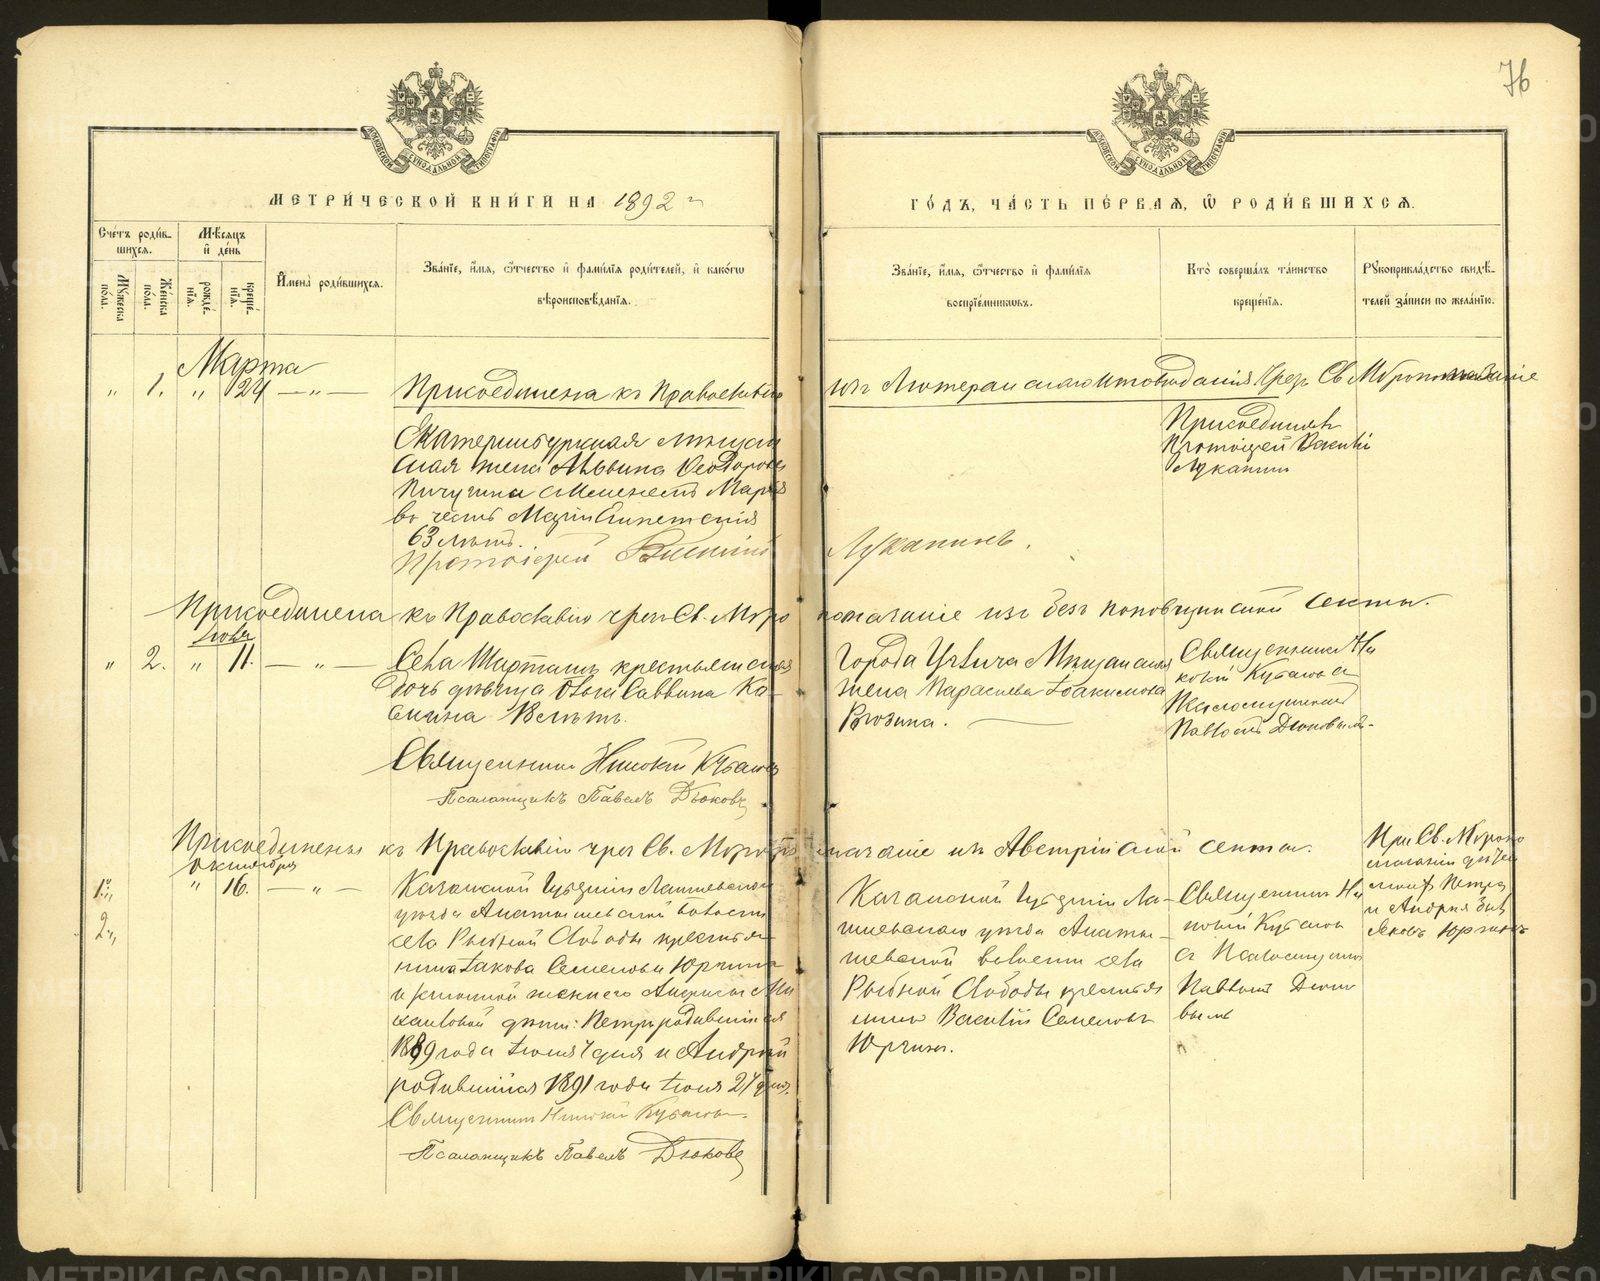 76
МОСКОВСКОЙ СѴНОДАЛЬНОЙ ТИПОГРАФІИ
МОСКОВСКОЙ СѴНОДАЛЬНОЙ ТИПОГРАФІИ
МЕТРИ́ЧЕСКОЙ КНИ́ГИ НА 1892 г
ГО́ДЪ, ЧА́СТЬ ПЕ́РВАЯ, Ѿ РОДИ́ВШИХСѦ.
Сче́тъ роди́в-
шихсѧ.
Мѣ́сѧцъ
и҆ де́нь
Мꙋжеска
по́ла.
Же́нска
по́ла.
рожде́-
нїѧ.
креще́-
нїѧ.
И҆мена̀ роди́вшихсѧ.
Зва́нїе, и҆́мѧ, ѻ҆́тчество и҆ фами́лїѧ роди́телей, и҆ како́гѡ
вѣроисповѣ́данїѧ.
Зва́нїе, и҆́мѧ, ѻ҆́тчество и҆ фами́лїѧ
воспрїе́мникѡвъ.
Кто̀ соверша́лъ та́инство
креще́нїѧ.
Рꙋкоприкла́дство свидѣ́-
телей за́писи по жела́нїю.
Марта
" 1. " 24 — " —
Присоединена къ Православію
изъ Лютеранскаго исповѣданія чрезъ Св. Мѵропомазаніе
Екатеринбургская мѣщан
ская жена Альвина Ѳеодорова
Пичугина с именемъ Марія
въ честь Маріи Египетскія
63 лѣтъ.
Протоіерей Василій
Лукапинъ.
Присоединилъ
Протоіерей Василій
Лукапинъ
Присоединена къ Православію чрезъ Св. Мѵро
помазаніе изъ безпоповщинской секты.
Іюня
" 2. " 11. — " —
Села Шарташъ крестьянская
дочь дѣвица Ольга Саввина Ка-
сьмина 18 лѣтъ.
Священникъ Николай
Псаломщикъ Павелъ Дюковъ
Города мѣщанская
жена Параскева Іоакимова
Священникъ Ни
колай
Псаломщикомъ
Павломъ Дюковымъ.
Присоединены къ Православію чрез Св. Мѵропо
мазаніе изъ Австрійской секты.
Октября
1. " 16. — " —
2.
Казанской губерніи Лаишевскаго
уѣзда волости
села Рыбной Слободы крестья-
нина Іакова Семенова Юргина
и законной жены его
дѣти: Петръ родившійся
1889 года Іюня дня и Андрей
родившійся 1891 года Іюня 27 дня.
Священникъ Николай
Псаломщикъ Павелъ Дюковъ
Казанской губерніи Ла-
ишевскаго уѣзда
волости села
Рыбной Слободы крестья
нинъ Василій Семеновъ
Юргинъ.
Священникъ Ни
колай
съ Псаломщикомъ
Павломъ Дюко
вымъ
При Св. Мѵропо
мазаніи дѣтей
Петра
и Андрея былъ
Яковъ Юргинъ
METRIKI.GASO-URAL.RU